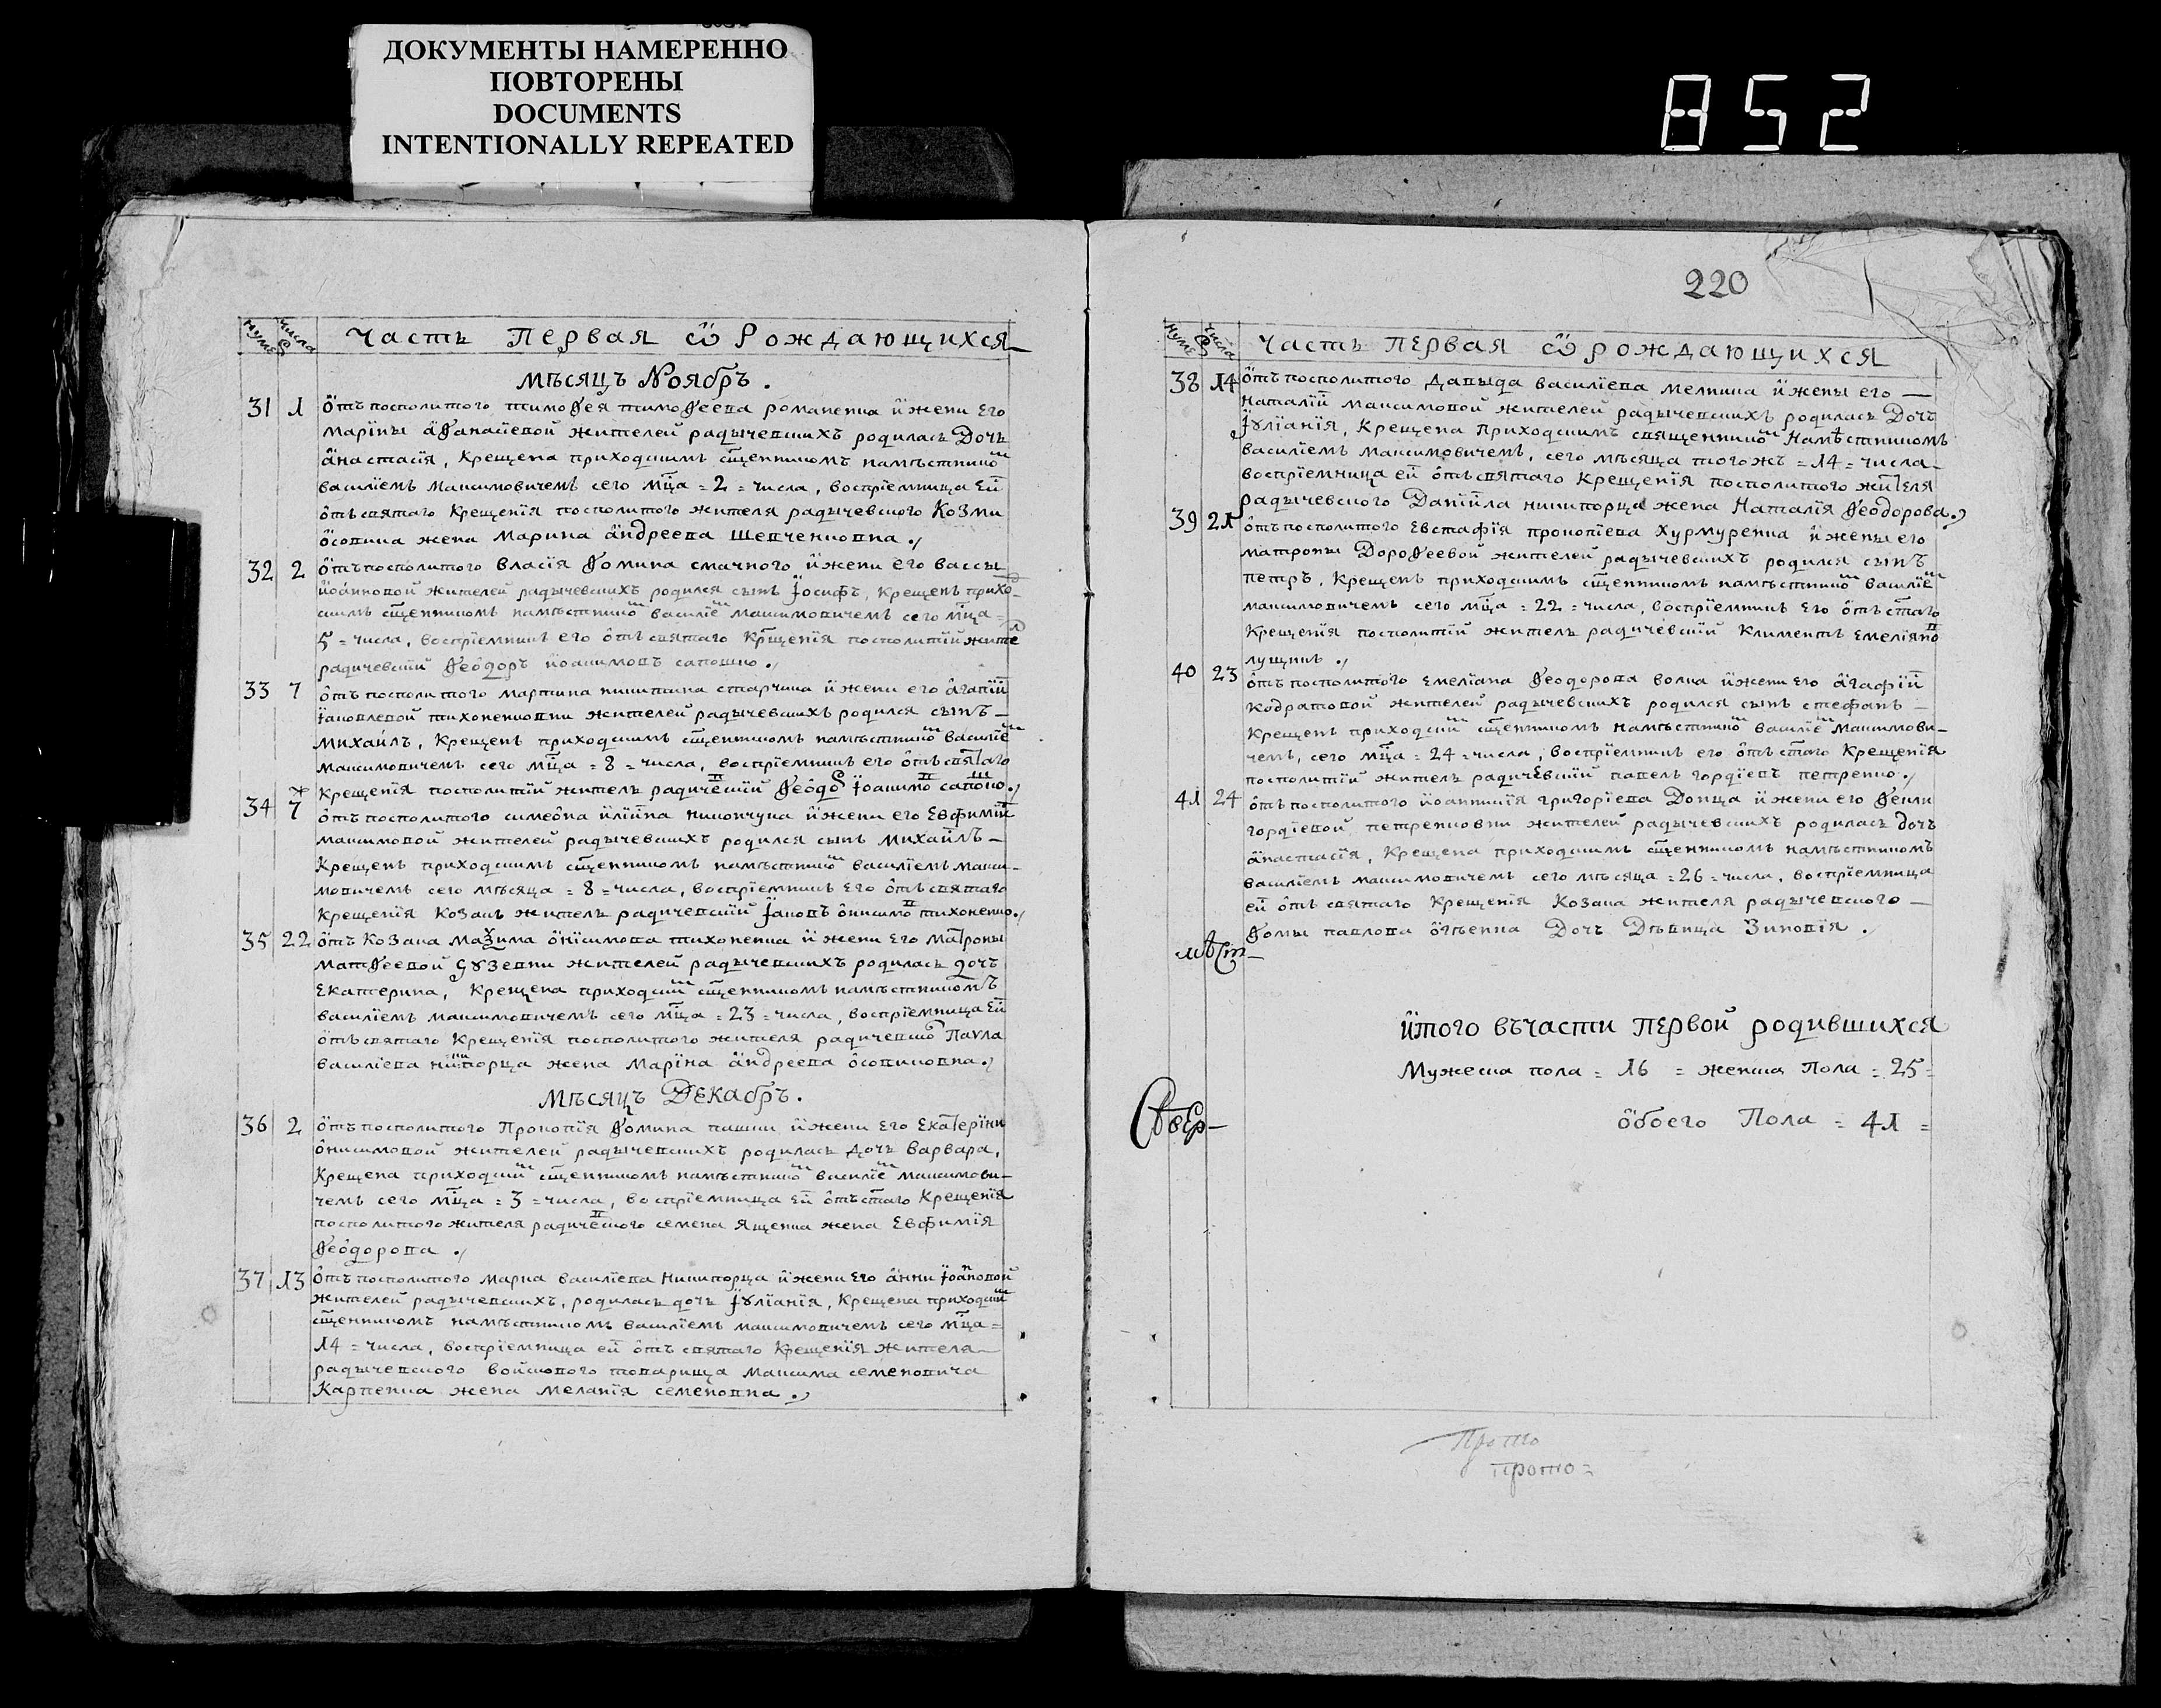 ДОКУМЕНТЫ НАМЕРЕННО
ПОВТОРЕНЫ
DOCUMENTS
INTENTIONALLY REPEATED
852
Нумер Числа Часть Первая ѿ Рождающихся
мѣсяцъ Ноябрь.
31 1 ѿтъ посполитого тимоѳея тимоѳеева романенка и жени Его
марїны аѳанасїевой жителей радычевскихъ родилась Дочь
анастасїя, Крещена приходскимъ сщенникомъ намѣстникомъ
василїемъ максимовичемъ сего мца = 2 = числа, воспрїемница Ей
отъ святаго Крещенїя посполитого жителя радычевского Козми
осовика жена Марина андреева шевченковна.
32 2 отъ посполитого власїя ѳомина смачного и жени его вассы
иоанновой жителей радычевскихъ родился сынъ Іосифъ, Крещенъ прихо-
скимъ сщенникомъ намѣстником василїем максимовичемъ сего мца =
5 = числа, воспрїемникъ его отъ святаго Крщенїя посполитїй жител
радичевскїй ѳеодоръ иоакимовъ сапошко.
33 7 отъ посполитого мартина никитина старчика и жени его агапїи
Іаковлевой тихоненковни жителей радычевскихъ родился сынъ —
михаилъ, Крещенъ приходскимъ сщенникомъ намѣстником василїем
максимовичемъ сего мца = 8 = числа, воспрїемникъ его отъ святаго
Крещенїя посполитїй жителъ радичевскїй ѳеодор Іоакимов сапошко.
34 7 отъ посполитого симеона илїина никончука и жени его Евфимїи
максимовой жителей радычевскихъ родился сынъ Михаилъ —
Крещенъ приходскимъ сщенникомъ намѣстником василїемъ макси-
мовичемъ сего мѣсяца = 8 = числа, воспрїемникъ Его отъ святаго
Крещенїя Козакъ жителъ радичевскїй Іаковъ онисимов тихоненко.
35 22 отъ Козака маѯима онїсимова тихоненка и жени Его матроны
матѳеевой гузевни жителей радычевскихъ родилась дочь
Екатерина, Крещена приходским сщенникомъ намѣстникомъ
василїемъ максимовичемъ сего мца = 23 = числа, воспрїемница Ей
отъ святаго Крещенїя посполитого жителя радичевско Паѵла
василїева никиторца жена Марїна андреева осовиковна.
мѣсяцъ Декабръ.
36 2 отъ посполитого Прокопїя ѳомина пишки и жени Его Екатерїни
онисимовой жителей радычевскихъ родилась дочь варвара,
Крещена приходским сщенникомъ намѣстником василїем максимови-
чемъ сего мца = 3 = числа, воспрїемница Ей отъ стаго Крещенїя
посполитого жителя радичевского семена ященка жена Евфимїя
ѳеодорова.
37 13 отъ посполитого марка василїева Никиторца и жени Его анни Іоанновой
жителей радычевскихъ, родилась дочь Іꙋлїанїя, Крещена приходским
сщенникомъ намѣстникомъ василїемъ максимовичемъ сего мца =
14 = числа, воспрїемница ей отъ святаго Крещенїя жителя
радычевского войскового товарища максима семеновича
Карпенка жена меланїя семеновна.
220
Нумер Числа Часть Первая ѿ рождающихся
38 14 отъ посполитого давыда василїева мелника и жены его —
наталїи максимовой жителей радычевскихъ родилась Дочь
Іꙋлїанїя, Крещена Приходскимъ священником Намѣстникомъ
василїемъ максимовичемъ, сего мѣсяца тогожъ = 14 = числа
воспрїемница ей отъ святаго Крещенїя посполитого жителя
радычевского Данїила никиторца жена Наталїя ѳеодорова.
39 21 отъ посполитого Евстафїя прокопїева Хурмуренка и жены его
матроны Дороѳеевой жителей радычевскихъ родился сынъ
петръ, Крещенъ приходскимъ сщенникомъ намѣстником василїем
максимовичемъ сего мца = 22 = числа, воспрїемникъ Его отъ стаго
Крещенїя посполитїй жителъ радичевскїй Климентъ Емелїянов
лущикъ.
40 23 отъ посполитого Емелїана ѳеодорова волка и жени Его агафїи
Кодратовой жителей радычевскихъ родился сынъ стефанъ —
Крещенъ приходским сщенникомъ намѣстником василїем максимови-
чемъ, сего мца = 24 = числа, воспрїемникъ его отъ стаго Крещенїя
посполитїй жителъ радичевскїй павелъ гордїевъ петренко.
41 24 отъ посполитого иоанникїя григорїева Донца и жени его ѳекли
гордїевой петренковни жителей радычевскихъ родилась дочь
анастасїя, Крещена приходскимъ сщенникомъ намѣстникомъ
василїемъ максимовичемъ сего мѣсяца = 26 = числа, воспрїемница
ей отъ святаго Крещенїя Козака жителя радычевского —
ѳомы павлова огѣенка Дочь Дѣвица Зиновїя.
итого въчасти Первой родившихся
Мужеска пола = 16 = женска Пола = 25 =
обоего Пола = 41 =